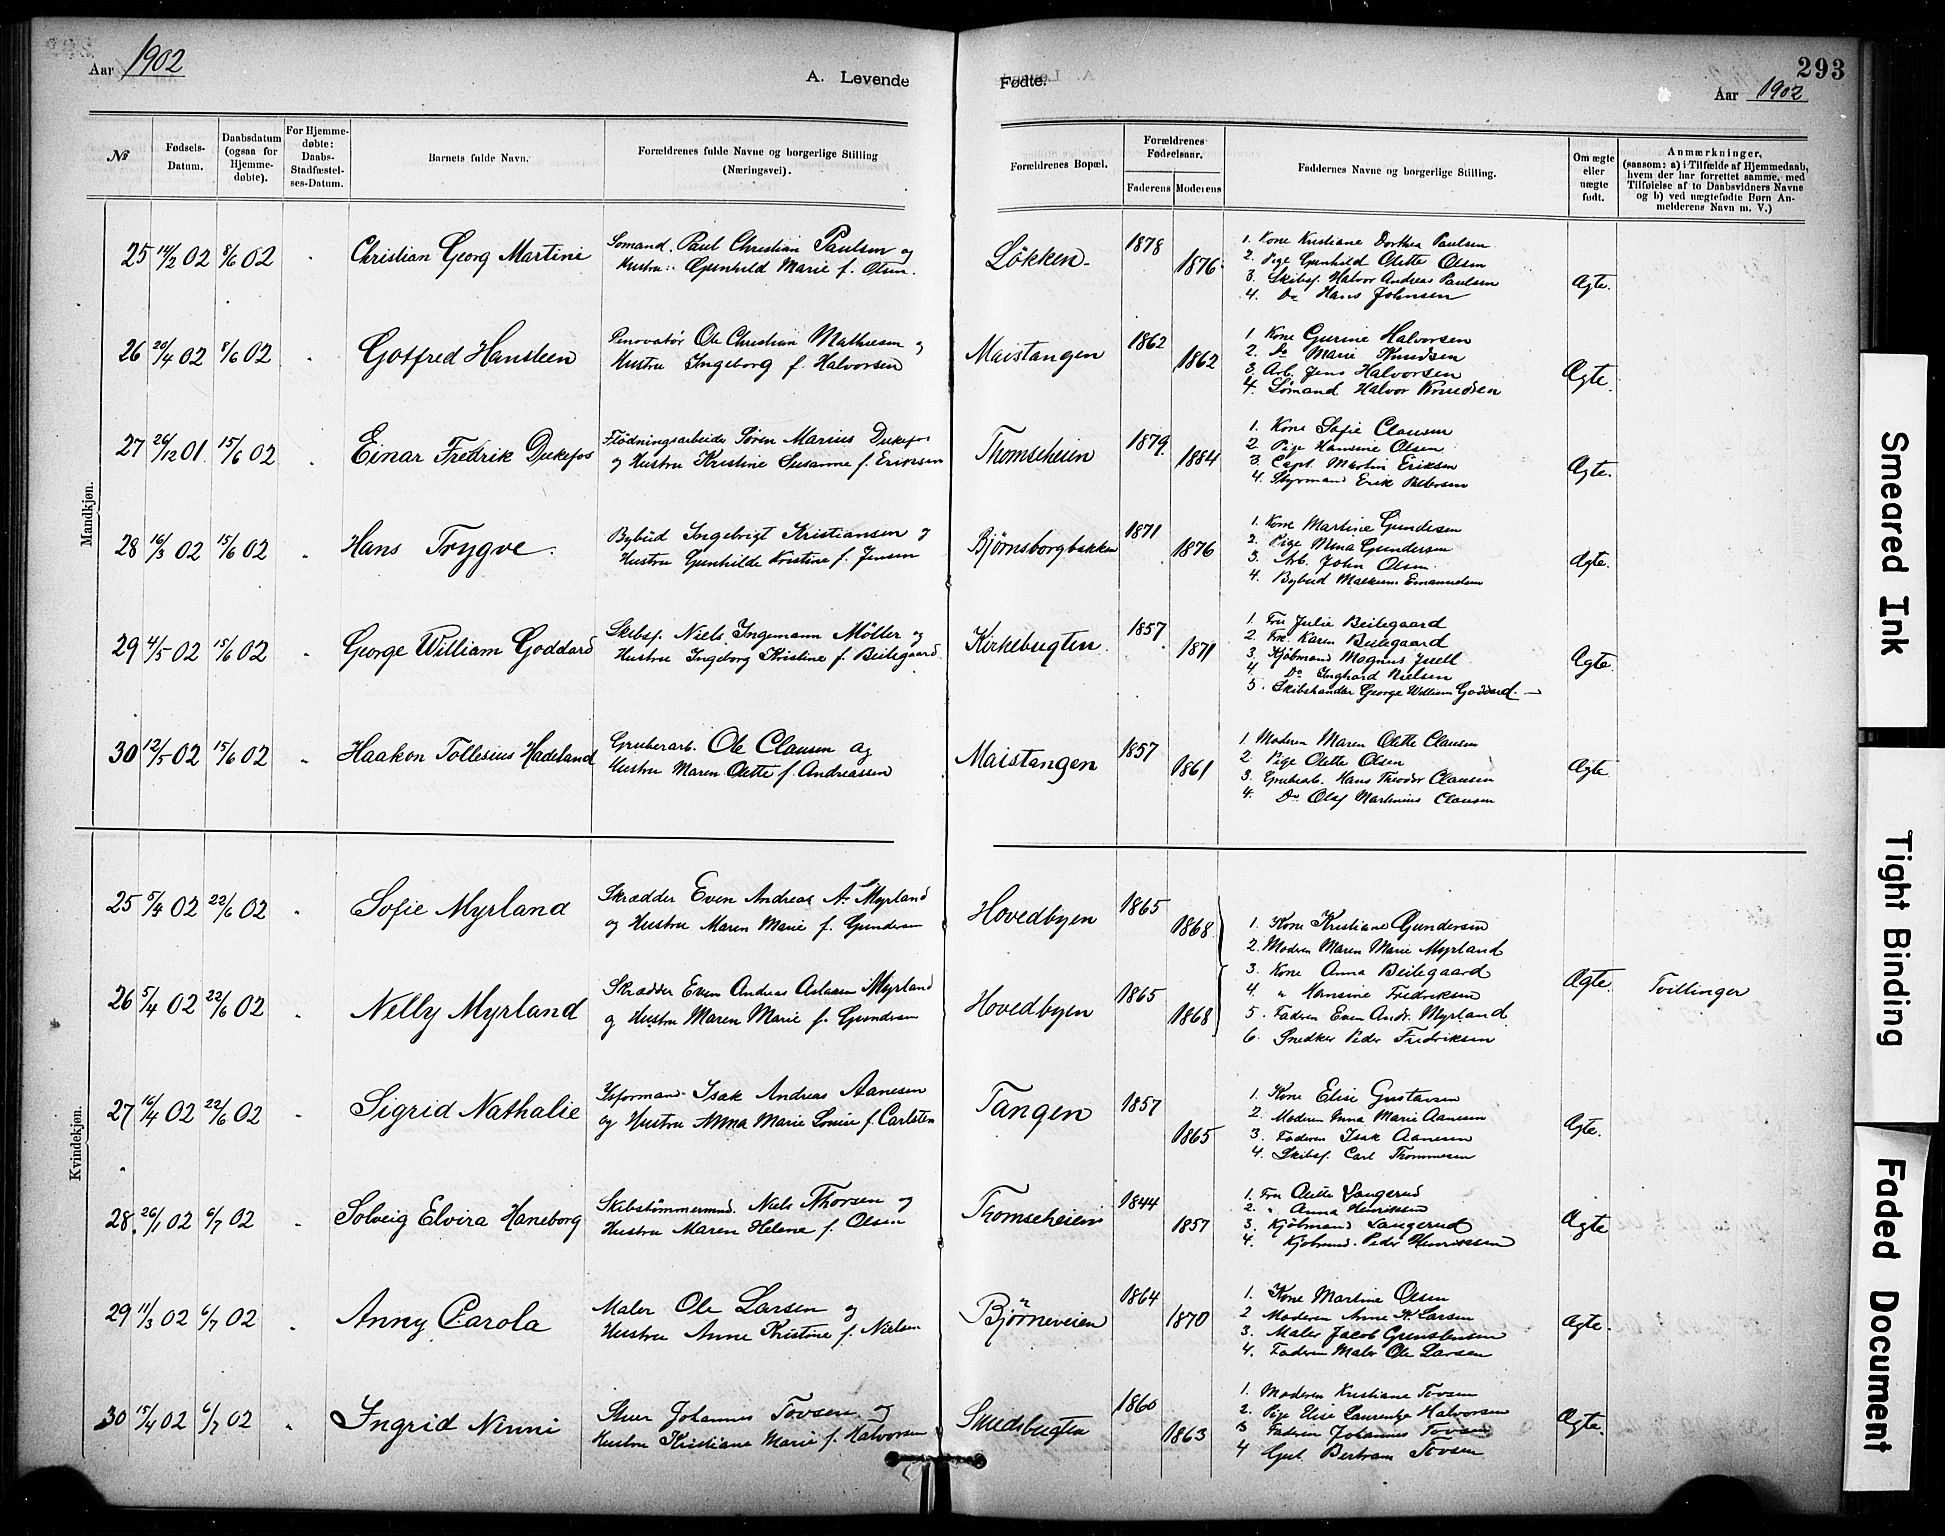 Aar 1902
A. Levende
Fødte.
293
Aar 1902
№
Fødsels-Datum.
Daabsdatum (ogsaa for Hjemme-døbte).
For Hjemme-døbte: Daabs-Stadfæstel-ses-Datum.
Barnets fulde Navn.
Forældrenes fulde Navne og borgerlige Stilling (Næringsvei).
Forældrenes Bopæl.
Forældrenes Fødselsaar.
Faderens
Moderens
Faddernes Navne og borgerlige Stilling.
Om ægte eller uægte født.
Anmærkninger,
(saasom: a) i Tilfælde af Hjemmedaab, hvem der har forrettet samme, med Tilføielse af to Daabsvidners Navne og b) ved uægtefødte Børn Anmelderens Navn m. V.)
Mandkjøn.
25 14/2 02 8/6 02 Christian Georg Martini
Sømand Paul Christian Paulsen og
Hustru: Gunhild Marie f. Olsen.
Løkken
1878
1876
1. Kone Kristiane Dorthea Paulsen
2. Pige Gunhild Olette Olsen
3. Skibsf. Halvor Andreas Paulsen
4. Do Hans Johnsen
Ægte.
26 20/4 02 8/6 02 Gotfred Hansteen
Renovatør Ole Christian Mathiesen og
Hustru Ingeborg f. Halvorsen
Maistangen
1862
1862
1. Kone Gurine Halvorsen
2. Do Marie Knudsen
3. Arb. Jens Halvorsen
4. Sømand Halvor Knudsen
Ægte.
27 26/12 01 15/6 02 Einar Fredrik Dukefos
Flødningsarbeider Søren Marius Dukefos
og Hustru Kristine Susanne f. Eriksen
Thomseheien
1879
1884
1. Kone Sofie Clausen
2. Pige Hansine Olsen
3. Capt. Martin Eriksen
4. Styrmand Erik Pettersen
Ægte.
28 16/3 02 15/6 02 Hans Trygve.
Bybud Ingebrigt Kristiansen og
Hustru Gunhilde Kristine f. Jensen
Bjørnsborgbakken
1871
1876
1. Kone Martine Gundersen
2. Pige Mina Gundersen
3. Arb. John Olsen
4. Bybud Markus Emanuelsen
Ægte.
29 4/5 02 15/6 02 George William Goddard
Skibsf. Niels Ingemann Møller og
Hustru Ingeborg Kristine f. Beilegaard.
Kirkebugten.
1857
1871
1. Fru Julie Beilegaard
2. Frk. Karen Beilegaard
3. Kjøbmand Magnus Juell
4. Do Inghard Nielsen
5. Skibshandler George William Goddard.
Ægte
30 12/5 02 15/6 02 Haakon Tollesius Hadeland
Gruberarb. Ole Clausen og
Hustru Maren Olette f. Andreassen
Maistangen
1857
1861
1. Moderen Maren Olette Clausen
2. Pige Olette Olsen
3. Grubearb. Hans Theodor Clausen
4. Do Olaf Martinius Clausen
Ægte
Kvindekjøn.
25 5/4 02 22/6 02 Sofie Myrland
Skrædder Even Andreas A. Myrland
og Hustru Maren Marie f. Gundersen
Hovedbyen
1865
1868
1. Kone Kristiane Gundersen
2. Moderen Maren Marie Myrland
3. Kone Anna Beilegaard
4. " Hansine Fredriksen
5. Faderen Even Andr. Myrland
6. Snedker Peder Fredriksen
Ægte.
Tvillinger
26 5/4 02 22/6 02 Nelly Myrland
Skrædder Even Andreas Aslaksen Myrland
og Hustru Maren Marie f. Gundersen
Hovedbyen
1865
1868
27 16/4 02 22/6 02 Sigrid Nathalie
Isak Andreas Aanesen
og Hustru Anna Marie Louise f. Carlsten
Tangen
1857
1865
1. Kone Elise Gustavsen
2. Moderen Anna Marie Aanesen
3. Faderen Isak Aanesen
4. Skibsf. Carl Thommesen
Ægte.
28. 26/1 02 6/7 02 Solveig Elvira Haneborg
Skibstømmermd. Niels Thorsen og
Hustru Maren Helene f. Olsen
Thomseheien
1844
1857
1. Fru Olette Langerud
2. " Anna Henriksen
3. Kjøbmand Langerud
4. Kjøbmand. Peder Henriksen
Ægte
29 11/3 02 6/7 02 Anny Carola
Maler Ole Larsen og
Hustru Anne Kristine f. Nielsen
Bjørneveien
1864
1870
1. Kone Martine Olsen
2 Moderen Anne K. Larsen
3. Maler Jacob Gunstensen
4. Faderen Maler Ole Larsen
Ægte.
30 15/4 02 6/7 02 Ingrid Nenni
Stuer Johannes Tovsen og
Hustru Kristiane Marie f. Halvorsen
Smedsbugten
1860
1863
1. Moderen Kristiane Tovsen
2. Pige Elise Laurentze Halvorsen
3 Faderen Johannes Tovsen
4 Gut Bertram Tovsen
Ægte.
Smeared Ink
Tight Binding
Faded Document